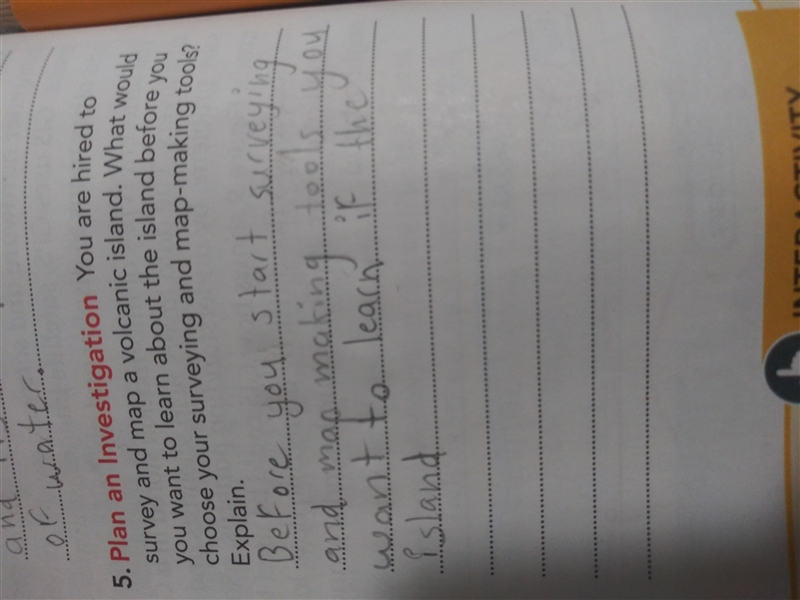 of water.
5. Plan an Investigation You are hired to
survey and map a volcanic island. What would
you want to learn about the island before you
choose your surveying and map-making tools?
Explain.
Before you start surveying
and map making tools you
want to learn if the
island
INTERACTIVITY